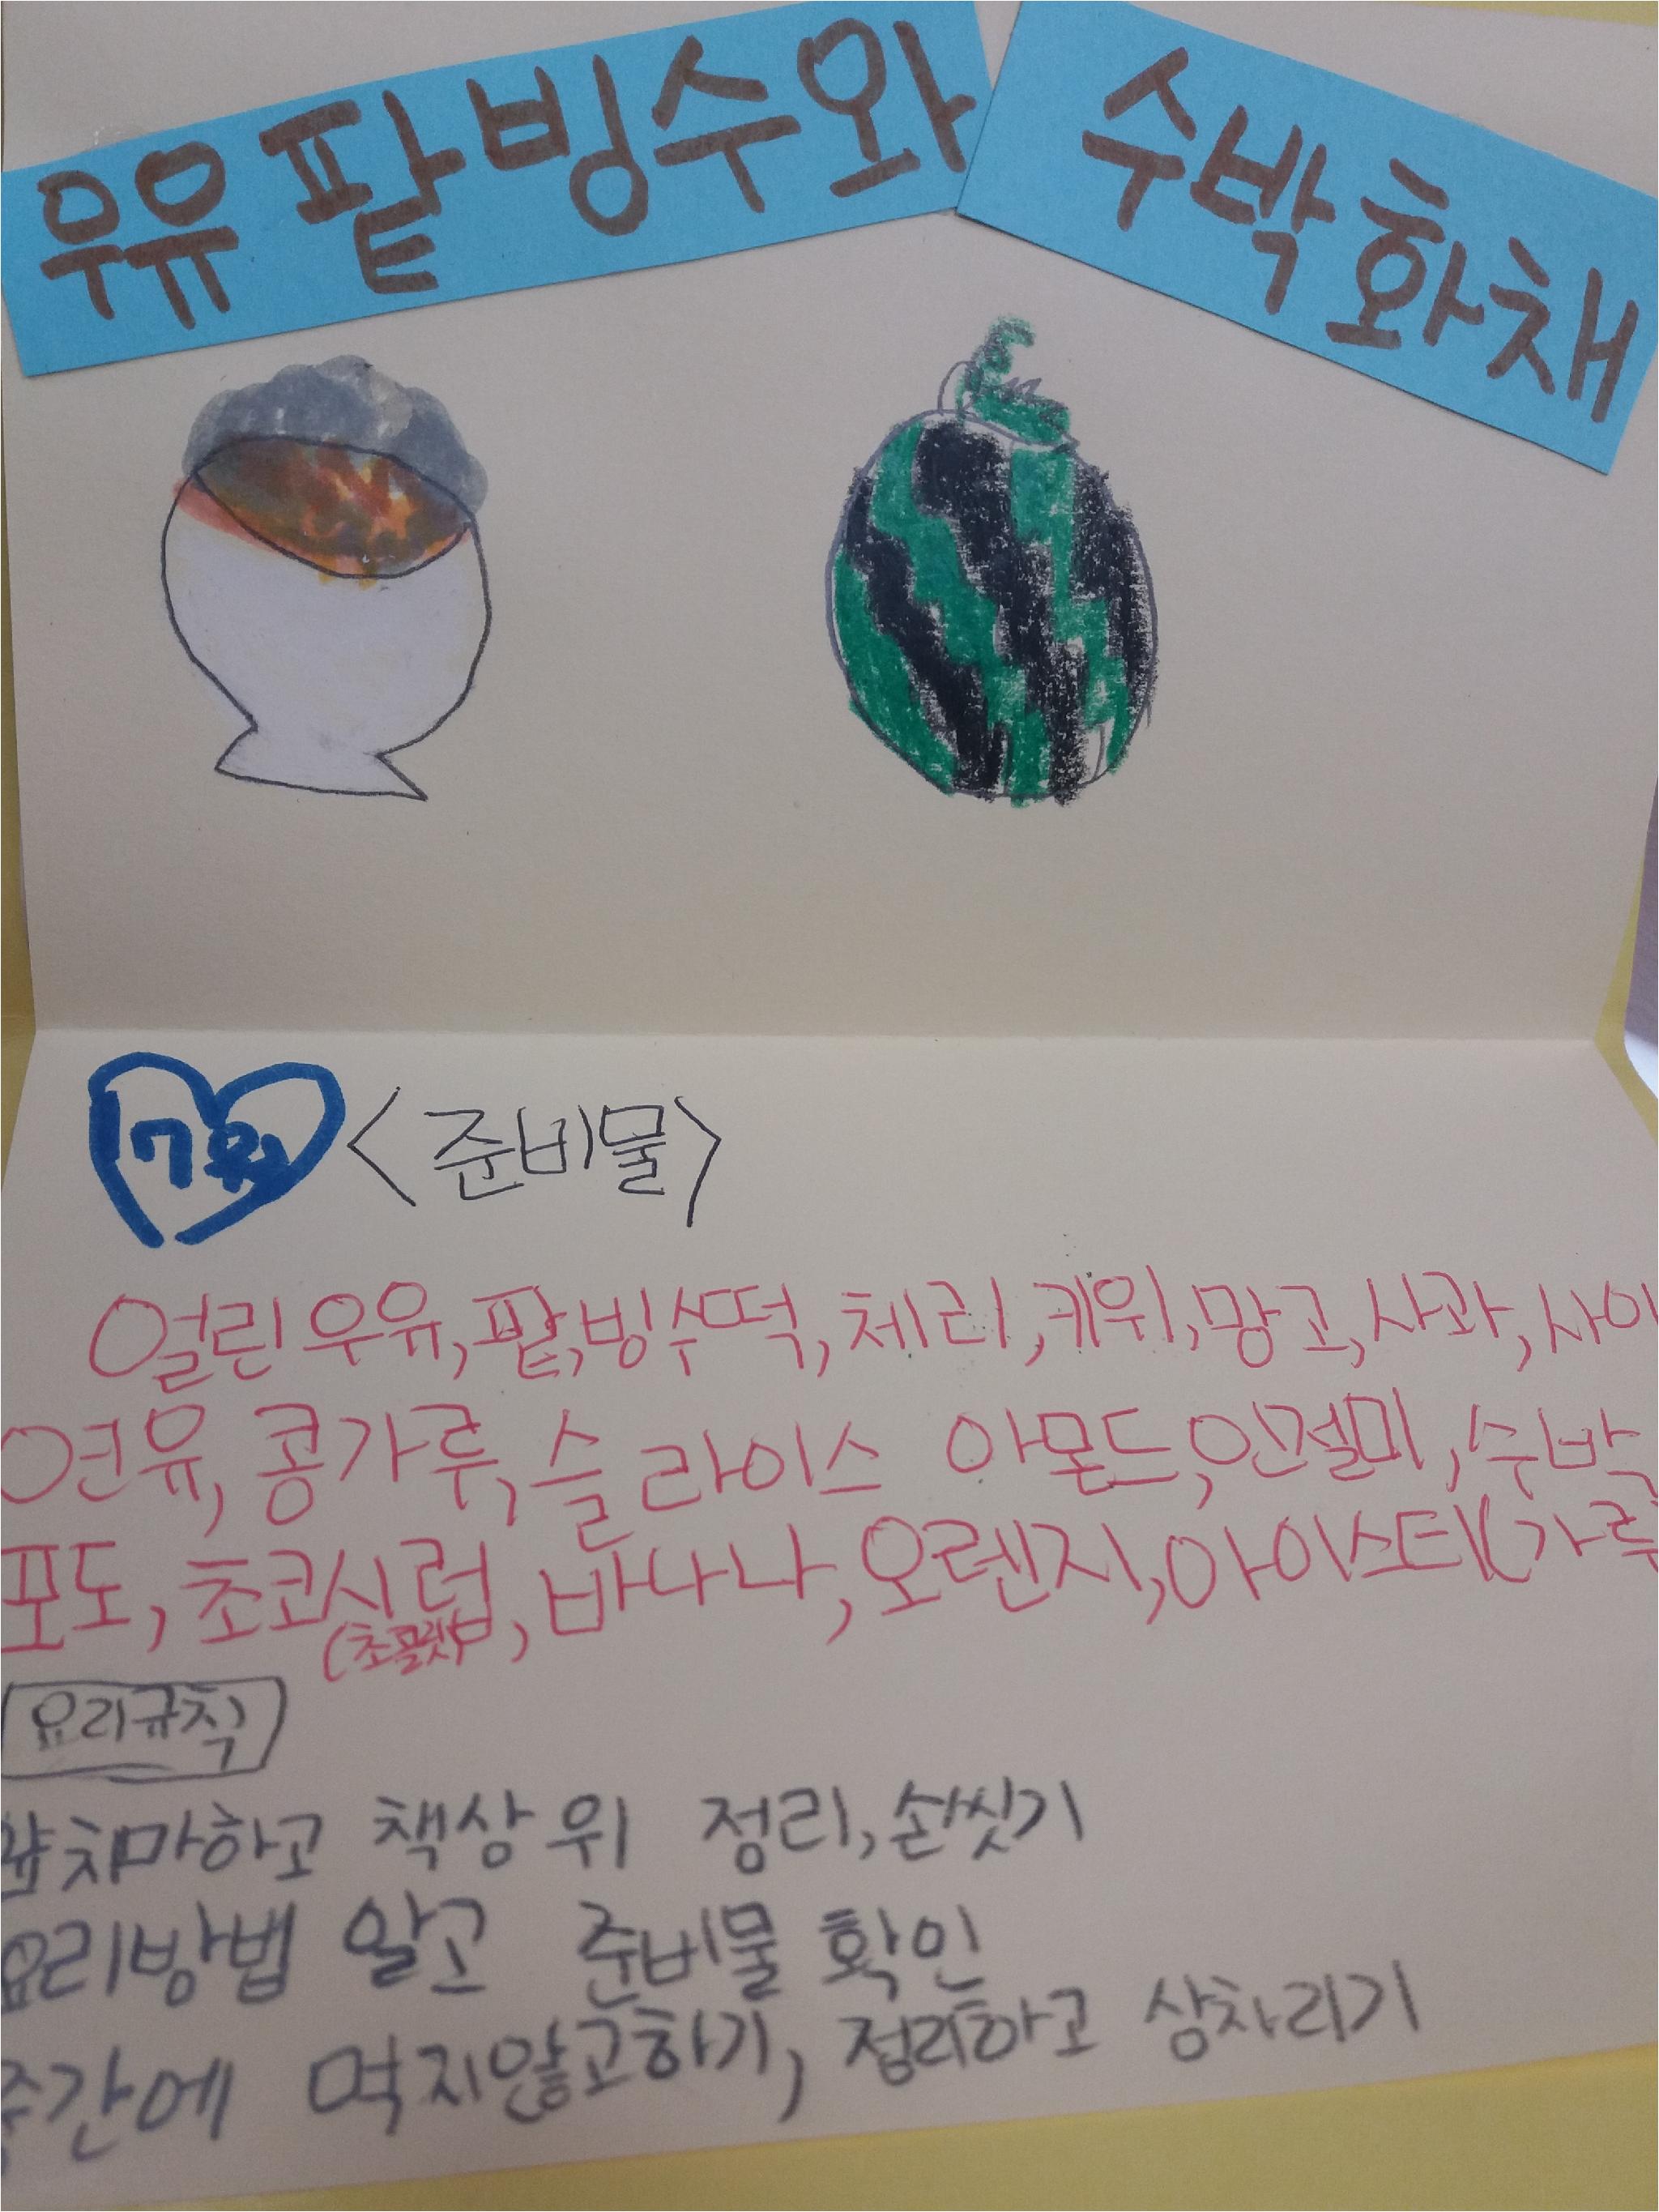 우유 팥빙수와 수박 화채
7월 <준비물>
얼린 우유, 팥, 빙수떡, 체리, 키위, 망고, 사과, 사이
연유, 콩가루, 슬라이스 아몬드, 인절미, 수박
포도, 초코시럽, 바나나, 오렌지, 아이스티(가루
요리규칙
앞치마하고 책상 위 정리, 손씻기
요리방법 알고 준비물 확인
중간에 먹지않고하기, 정리하고 상차리기